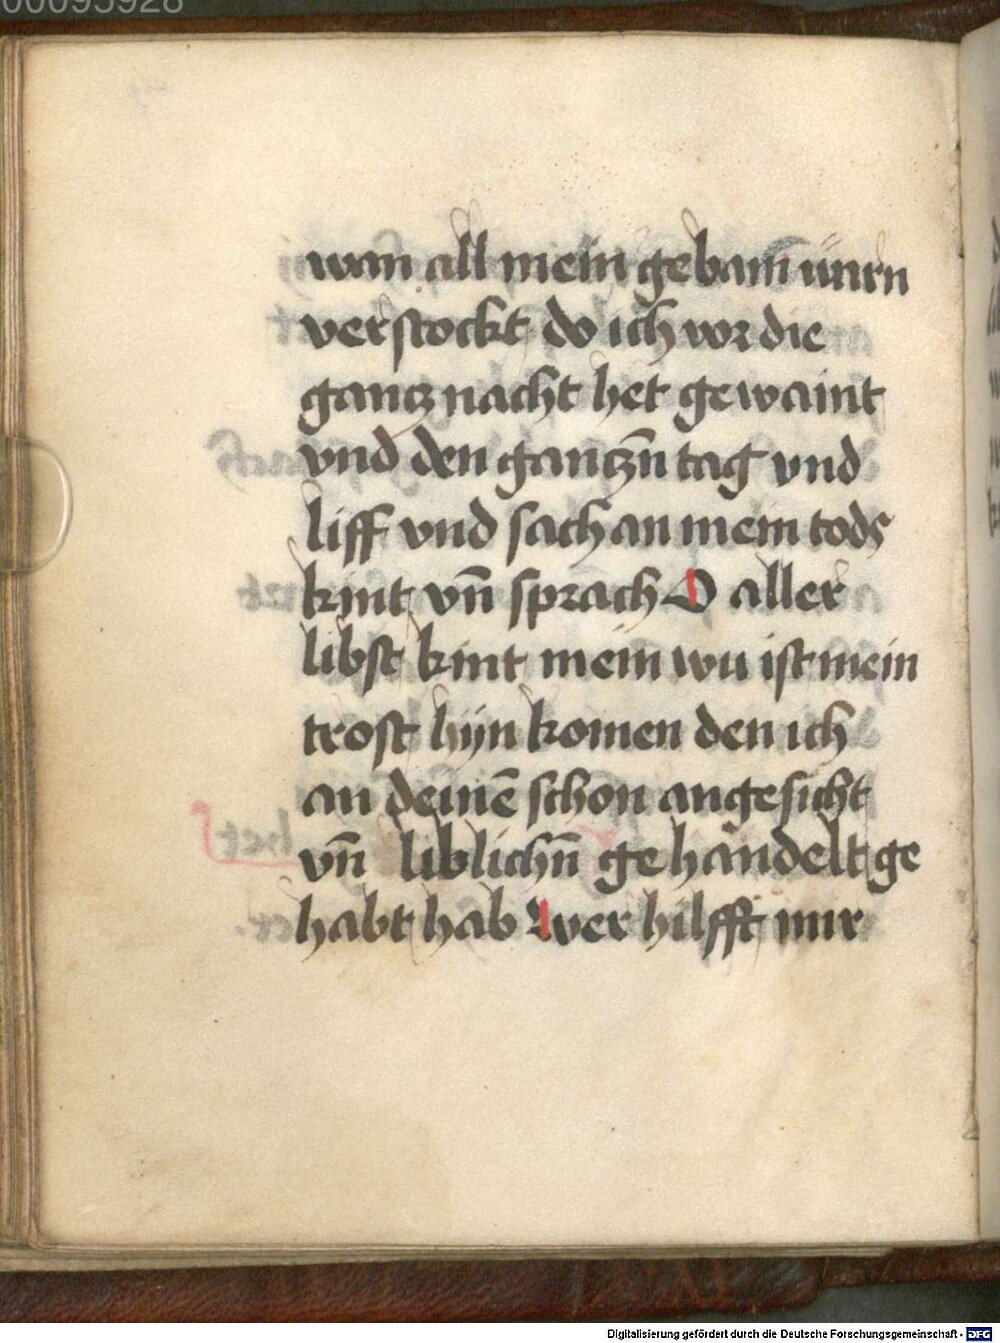 00095928
wan all mein gebain
verstockt do ich vor die
gantz nacht het gewaint
vnd den gantzn̄ tag vnd
liff vnd sach an mein tods
kint vn̄ sprach O aller
libst kint mein wu ist mein
trost hyn komen den ich
an deinē schon angesicht
vn̄ liblichn̄ gehandelt ge
habt hab Wer hilfft mir
Digitalisierung gefördert durch die Deutsche Forschungsgemeinschaft - DFG